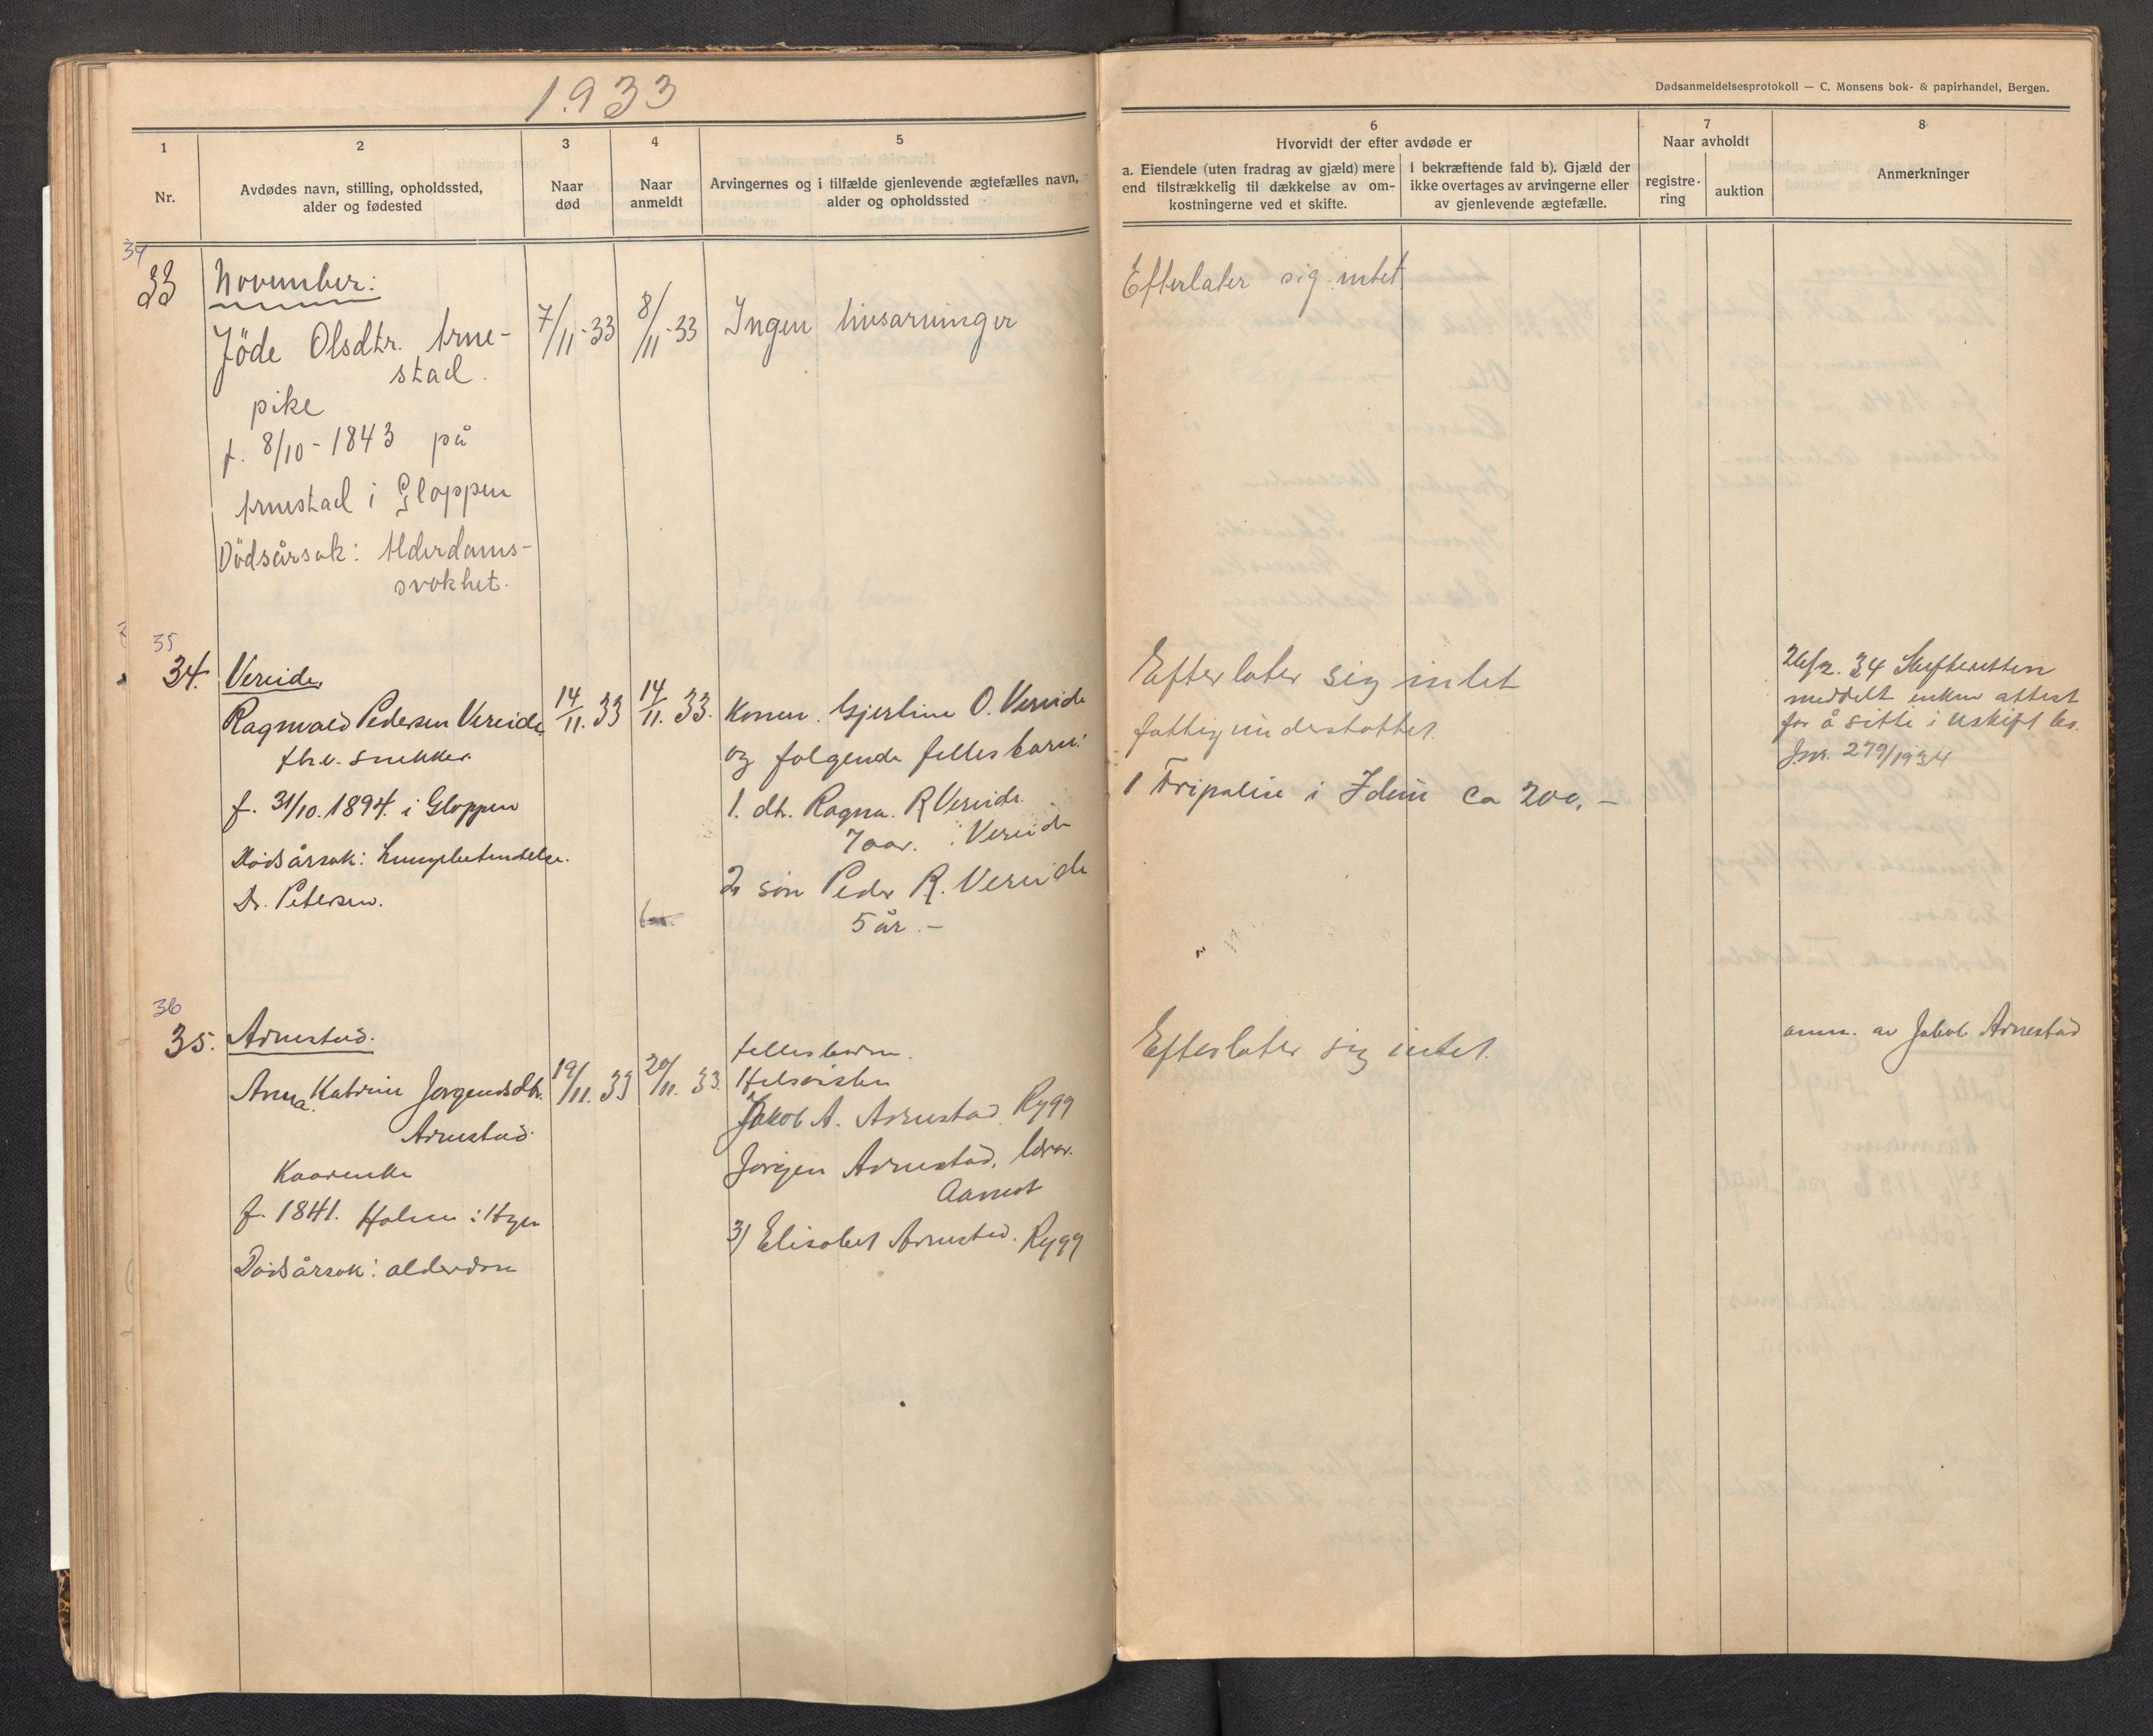 1933
Dødsanmeldelsesprotokoll — C. Monsens bok- & papirhandel, Bergen.
1
Nr.
2
Avdødes navn, stilling, opholdssted,
alder og fødested
3
Naar
død
4
Naar
anmeldt
5
Arvingernes og i tilfælde gjenlevende ægtefælles navn,
alder og opholdssted
6
Hvorvidt der efter avdøde er
a. Eiendele (uten fradrag av gjæld) mere
end tilstrækkelig til dækkelse av om-
kostningerne ved et skifte.
I bekræftende fald b). Gjæld der
ikke overtages av arvingerne eller
av gjenlevende ægtefælle.
7
Naar avholdt
registre-
ring
auktion
8
Anmerkninger
34
33
November:
Jöde Olsdtr. Arne-
stad.
pike
f. 8/10-1843 på
Arnestad i Gloppen
Dödsårsak: Alderdoms-
svakhet.
7/11-33
8/11-33
Ingen livsarvinger
Efterlater sig intet
35
34.
Vereide
Ragnvald Pedersen Vereide
fhv. snekker
f. 31/10.1894. i Gloppen
Dødsårsak: Lungebetendelse.
Dr. Petersen.
14/11. 33
14/11. 33.
Konen. Gjertine O. Vereide
og følgende fellesbarn:
1. dtr. Ragna. R Vereide.
7 aar. i Vereide
2 søn Peder R. Vereide
5 år.-
Efterlater sig intet
fattigunderstøttet.
1 Fripolise i Idun ca 200,-
26/2. 34 Skifteretten
meddelt enken attest
for å sitte i uskiftet bo.
Jnr. 279/1934
36
35.
Arnestad.
Anna Katrine Jørgensdtr.
Arnestad.
Kaarenke
f. 1841. Holme i Hyen
Dødsårsak: alderdom
19/11. 33
20/11. 33.
fellesbarn.
Helsøsken
Jakob A. Arnestad Rygg
Jørgen Arnestad, lærer.
Aamot
3) Elisabet Arnestad. Rygg
Efterlater sig intet.
anm. av Jakob Arnestad